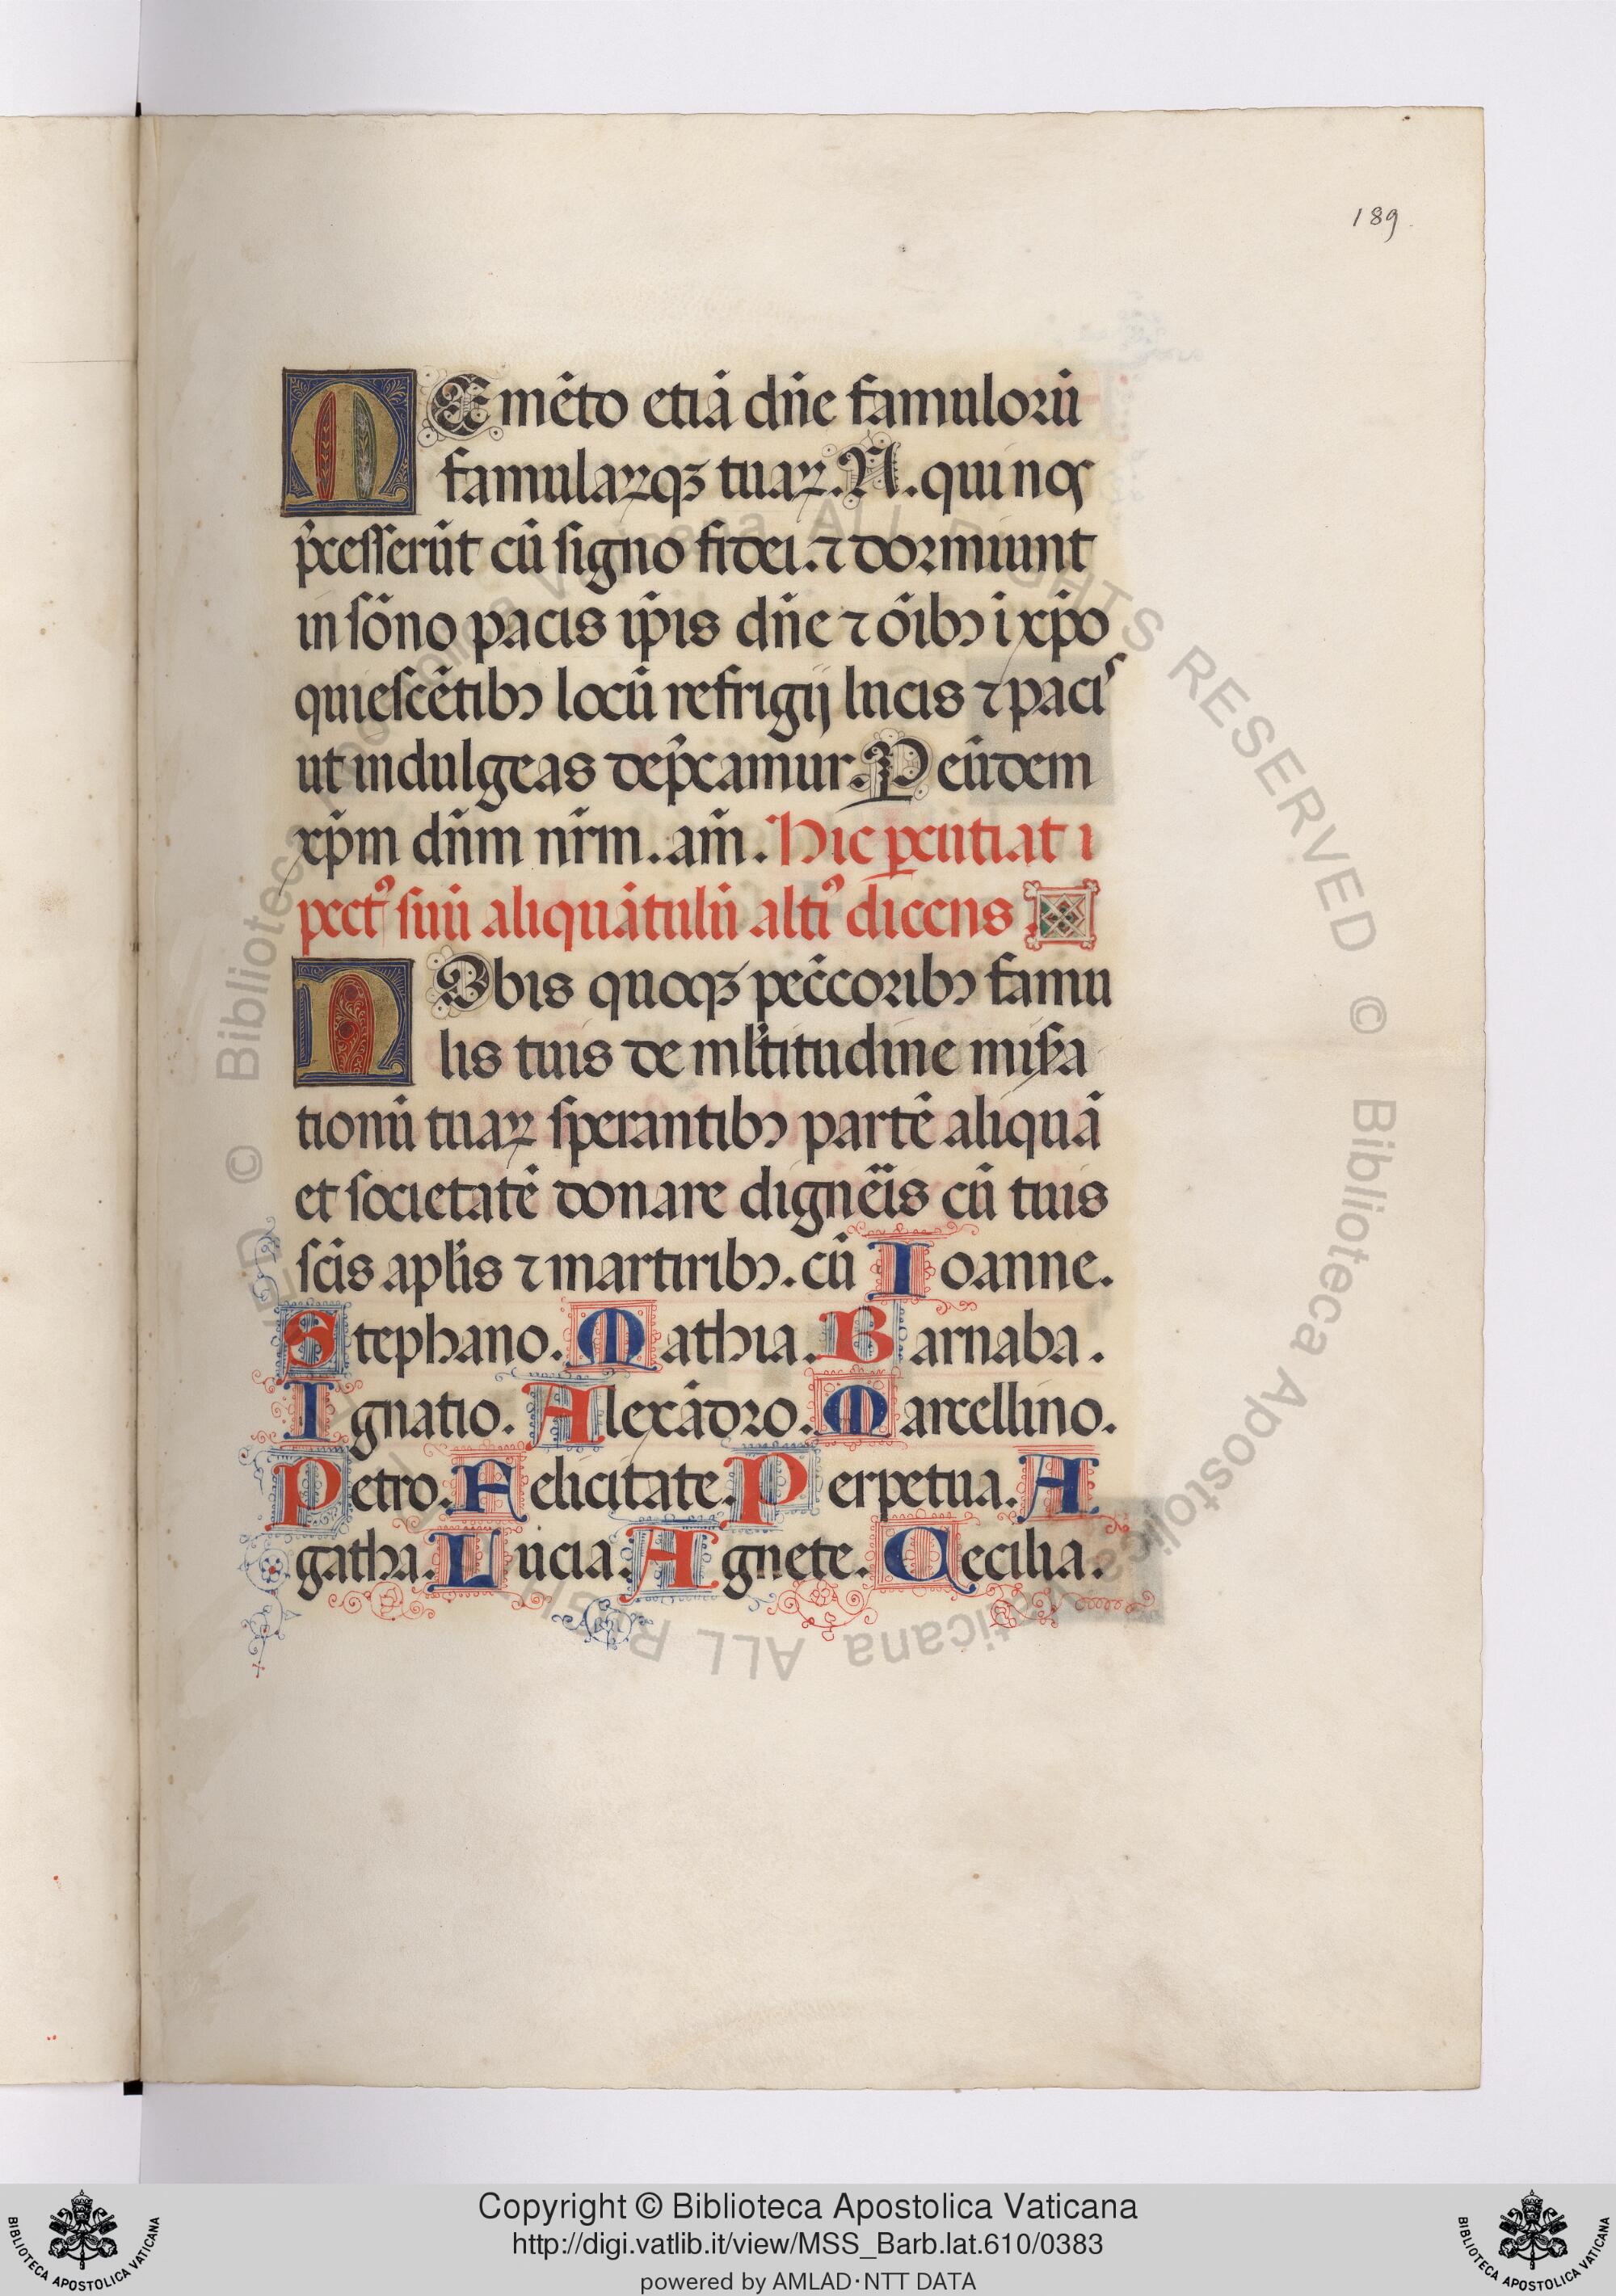 189
MEmẽto etiã dñe famulorũ
famulaꝝqꝫ tuaꝝ. N. qui nos
p̃cesserũt cũ signo fidei. ⁊ dormiunt
in sõno pacis ip̃is dñe ⁊ õibꝰ ĩ xp̃o
quiescẽtibꝰ locũ refrigij lucis ⁊ pacis
ut indulgeas dep̃camur. P eũdem
xp̃m dñm nr̃m. am̃. Hic ꝑcutiat ĩ
pectꝰ suũ aliquãtulũ altiꝰ dicens
NObis quoqꝫ pec̃coribꝰ famu
lis tuis de ml̃titudine mis̃a
tionũ tuaꝝ sperantibꝰ partẽ aliquã
et societatẽ donare digneĩs cũ tuis
sc̃is apl̃is ⁊ martiribꝰ. cũ Ioanne.
Stephano. Mathia. Barnaba.
Ignatio. Alexãdro. Marcellino.
Petro. Felicitate. Perpetua. A
gatha. Lucia. Agnete. Cecilia.
© Biblioteca Apostolica Vaticana ALL RIGHTS RESERVED
Copyright © Biblioteca Apostolica Vaticana
http://digi.vatlib.it/view/MSS_Barb.lat.610/0383
powered by AMLAD·NTT DATA
BIBLIOTECA APOSTOLICA VATICANA
BIBLIOTECA APOSTOLICA VATICANA